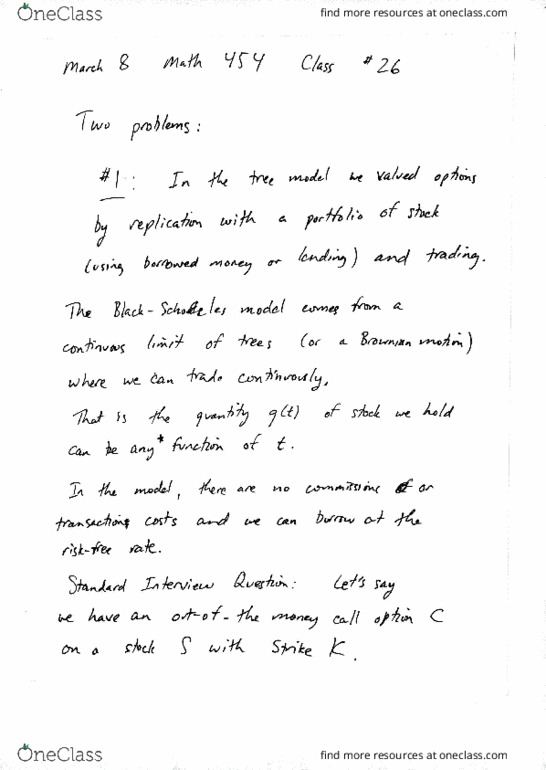 OneClass
find more resources at oneclass.com
March 8 Math 454 Class #26
Two problems:
#1: In the tree model we valued options
by replication with a portfolio of stock
(using borrowed money or lending) and trading.
The Black-Scholes model comes from a
continuous limit of trees (or a Brownian motion)
where we can trade continuously,
That is the quantity g(t) of stock we hold
can be any* function of t.
In the model, there are no commissions or
transactions costs and we can burrow at the
risk-free rate.
Standard Interview Question: Let's say
we have an out-of-the money call option C
on a stock S with Strike K.
OneClass
find more resources at oneclass.com